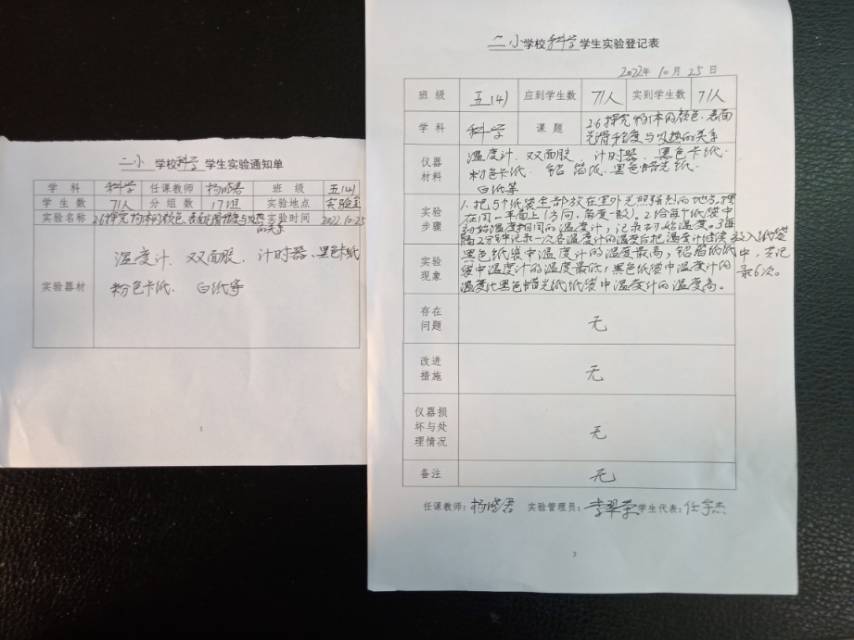 二小学校科学学生实验通知单
学科 科学 任课教师 杨 君 班级 五(4)
学生数 71人 分组数 17组 实验地点 实验室
实验名称 2.6探究物体的颜色、表面光滑程度与吸热的关系 实验时间 2022.10.25
实验器材
温度计、双面胶、计时器、黑色卡纸
粉色卡纸、白纸等
1
二小学校科学学生实验登记表
2022年10月25日
班级 五(4) 应到学生数 71人 实到学生数 71人
学科 科学 课题 2.6探究物体的颜色、表面
光滑程度与吸热的关系
仪器材料
温度计、双面胶、计时器、黑色卡纸、
粉色卡纸、铝箔纸、黑色蜡光纸、
白纸等
实验步骤
1.把5个纸袋全部放在室外光照强烈的地方。摆
在同一平面上(方向、角度一致)。2.给每个纸袋中
初始温度相同的温度计,记录初始温度。3.每
隔2分钟记录一次各温度计的温度后把温度计继续放入纸袋
中,共记
录6次。
实验现象
黑色纸袋中温度计的温度最高,铝箔纸纸
袋中温度计的温度最低,黑色纸袋中温度计的
温度比黑色蜡光纸纸袋中温度计的温度高。
存在问题 无
改进措施 无
仪器损坏与处理情况 无
备注 无
任课教师:杨 君 实验管理员:李翠荣 学生代表:任宇杰
3